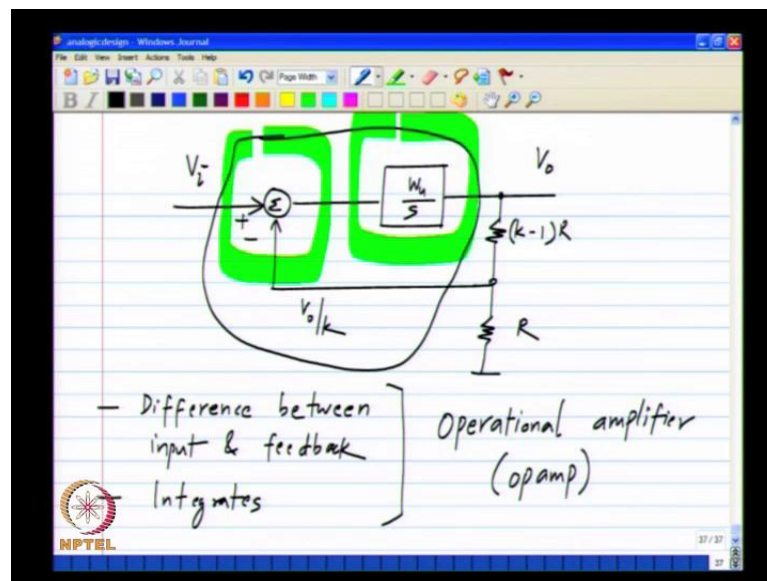 analogicdesign - Windows Journal
File Edit View Insert Actions Tools Help
Page Width
B I
Vi
Vo
Σ
+
-
Wu
s
(k-1)R
Vo/k
R
- Difference between
input & feedback
- Integrates
Operational amplifier
(opamp)
NPTEL
37/37
37